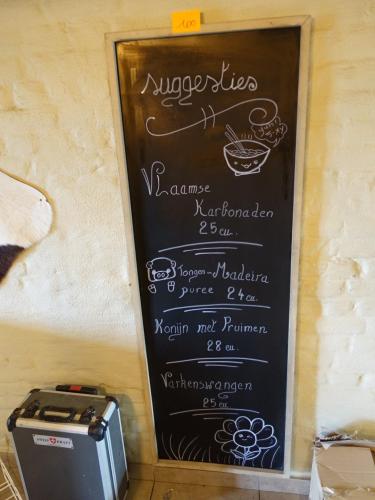 100
suggesties
Vlaamse
Karbonaden
25 eu.
Tongen-Madeira
puree 24 eu.
Konijn met Pruimen
28 eu.
Varkenswangen
25 eu.